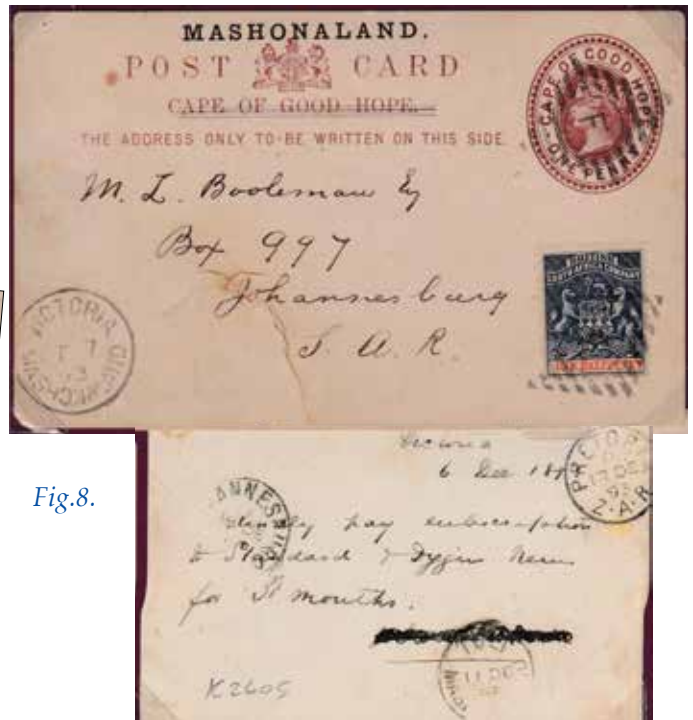 MASHONALAND.
POST CARD
CAPE OF GOOD HOPE.
THE ADDRESS ONLY TO BE WRITTEN ON THIS SIDE.
CAPE OF GOOD HOPE
ONE PENNY
M. L. Booleman Esq
Box 997
Johannesburg
S. A. R.
BRITISH
SOUTH AFRICA COMPANY
VICTORIA
7
93
Fig.8.
Victoria
6 Dec 189
PRETOR
13 DE
93
Z.A.R
ANNESBU
Kindly pay subscription
to Standard & Diggers News
for 3 months.
TULI
11 DE
K2605